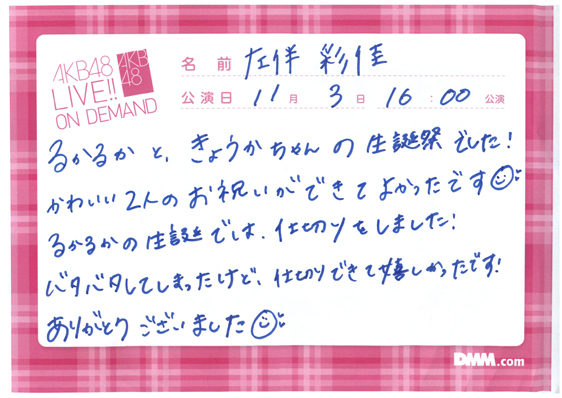 AKB48
LIVE!!
ON DEMAND
AKB
48
名前 左伴 彩佳
公演日 11月 3日 16:00 公演
るかるかと、きょうかちゃんの生誕祭でした!
かわいい2人のお祝いができてよかったです
るかるかの生誕では、仕切りをしました!
バタバタしてしまったけど、仕切りできて嬉しかったです!
ありがとうございました
DMM.com